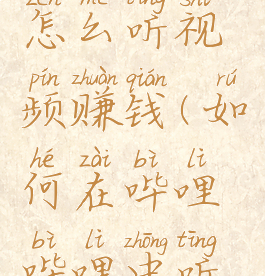 zěn me tīng shì
怎么听视
pín zhuàn qián rú
频赚钱(如
hé zài bì lì
何在哔哩
bì lì zhōng tīng
哔哩中听